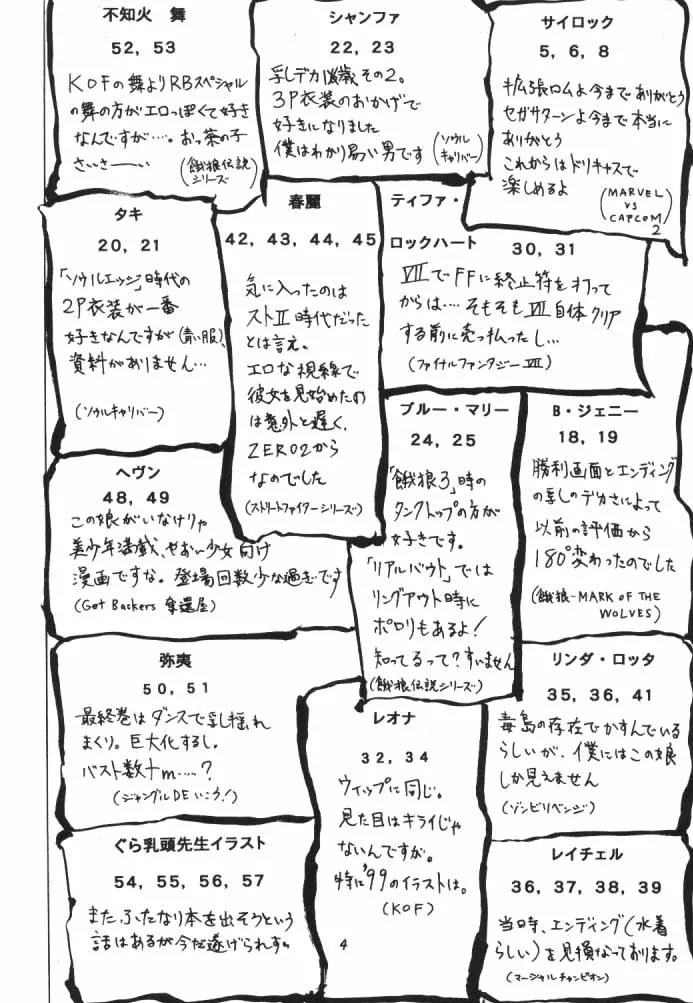 不知火 舞
52, 53
KOFの舞よりRBスペシャル
の舞の方がエロっぽくて好き
なんですが……。おっ茶の子
さいさーーーい
(餓狼伝説
シリーズ)
シャンファ
22, 23
乳しデカ 歳 その2。
3P衣装のおかげで
好きになりました
僕はわかり易い男です
(ソウル
キャリバー)
サイロック
5, 6, 8
拡張ロムよ今までありがとう
セガサターンよ今まで本当に
ありがとう
これからはドリキャスで
楽しめるよ
(MARVEL
VS
CAPCOM
2
タキ
20, 21
「ソウルエッジ」時代の
2P衣装が一番
好きなんですが(青い服)、
資料がありません…
(ソウルキャリバー)
春麗
42, 43, 44, 45
気に入ったのは
ストⅡ時代だった
とは言え。
エロな視線で
彼女を見始めたの
は意外と遅く、
ZERO2から
なのでした
(ストリートファイターシリーズ)
ティファ・
ロックハート
30, 31
ⅦでFFに終止符を打って
からは…. そもそもⅦ自体クリア
する前に売っ払ったし…
(ファイナルファンタジーⅦ)
ブルー・マリー
24, 25
「餓狼3」時の
タンクトップの方が
好きです。
「リアルバウト」では
リングアウト時に
ポロリもあるよ!
知ってるって?すいません
(餓狼伝説シリーズ)
B・ジェニー
18, 19
勝利画面とエンディング
の乳しのデカさによって
以前の評価から
180°変わったのでした
(餓狼-MARK OF THE
WOLVES)
ヘヴン
48, 49
この娘がいなけりゃ
美少年満載、せおい少女向け
漫画ですな。登場回数少な過ぎです
(Get Backers 奪還屋)
弥夷
50, 51
最終巻はダンスで乳揺れ
まくり。巨大化するし。
バスト数十m…..?
(ジャングルDEいこう!)
レオナ
32, 34
ウィップに同じ。
見た目はキライじゃ
ないんですが。
特に'99のイラストは。
(KOF)
リンダ・ロッタ
35, 36, 41
毒島の存在でかすんでいる
らしいが、僕にはこの娘
しか見えません
(ゾンビリベンジ)
ぐら乳頭先生イラスト
54, 55, 56, 57
また、ふたなり本を出そうという
話はあるが今だ遂げられず。
レイチェル
36, 37, 38, 39
当時、エンディング(水着
らしい)を見損なっております。
(マーシャルチャンピオン)
4